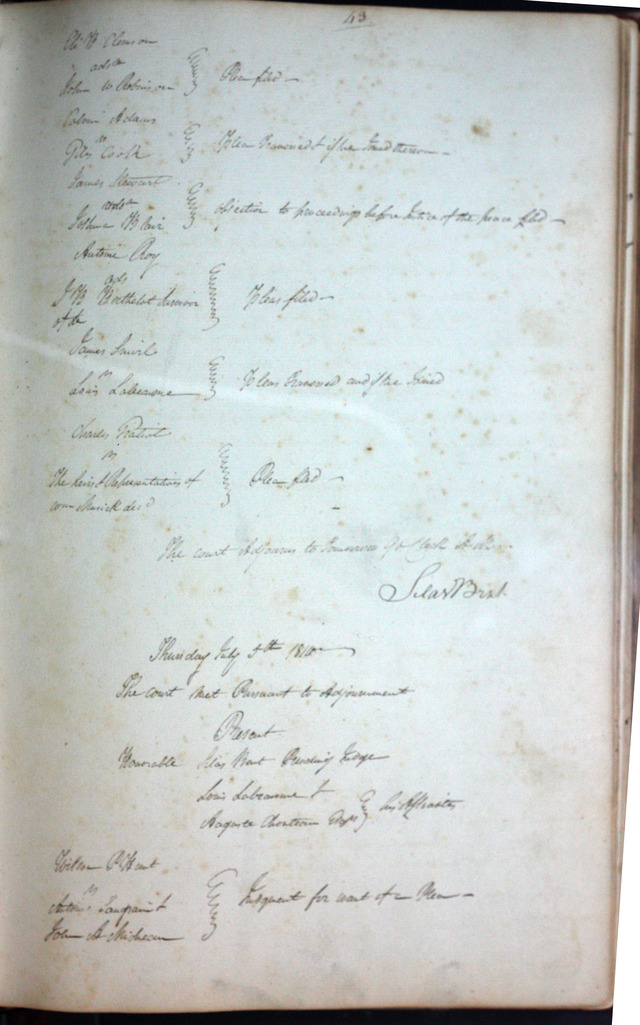 43
Eli B Clemson
ads
John W Robinson
Plea filed
Calvin Adams
vs
Giles Cook
Plea Traversed & issue Joined thereon
James Stewart
ads
Joshua Blair
objection to proceedings before Justice of the peace filed
Antoine Roy
ads
J B Berthelot
Pleas filed
James
vs
Louis Labeaume
Pleas Traversed and issue Joined
Charles Gratiot
vs
The heirs & Representatives of
Musick decd
Plea filed
The court Adjourns to Tomorrow Clock
Silas Bent
Thursday July 5th 1810
The court met Pursuant to Adjournment
Present
Honorable Silas Bent Presiding Judge
Louis Labeaume &
Auguste Chouteau Esqrs
his Associates
Wilson P Hunt
vs
Antoine Saugrain &
John A
Judgment for want of a Plea